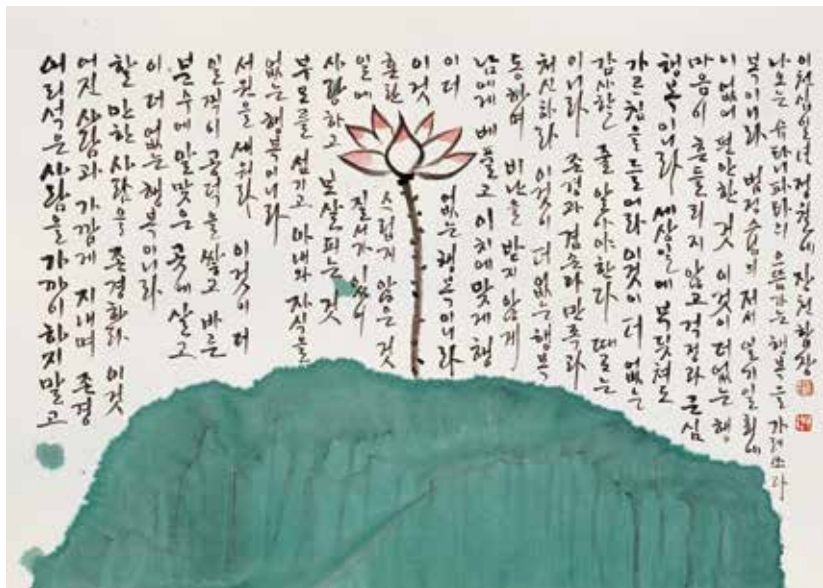 어리석은 사람을 가까이하지 말고
어진 사람과 가깝게 지내며 존경
할 만한 사람을 존경하라 이것
이 더 없는 행복이니라
분수에 알맞은 곳에 살고
일찍이 공덕을 쌓고 바른
서원을 세워라 이것이 더
없는 행복이니라
부모를 섬기고 아내와 자식을
사랑하고 보살피는 것
일에 질서가 있어
혼란 스럽지 않은 것
이것
이 더 없는 행복이니라
남에게 베풀고 이치에 맞게 행
동하며 비난을 받지 않게
처신하라 이것이 더 없는 행복
이니라 존경과 겸손과 만족과
감사할 줄 알아야 한다 때로는
가르침을 들으라 이것이 더 없는
행복이니라 세상일에 부딪쳐도
마음이 흔들리지 않고 걱정과 근심
이 없어 편안한 것 이것이 더없는 행
복이니라 법정스님의 저서 일기일회에
나오는 슈타니파타의 으뜸가는 행복을 가려쓰다
이천십일년 정월에 합장